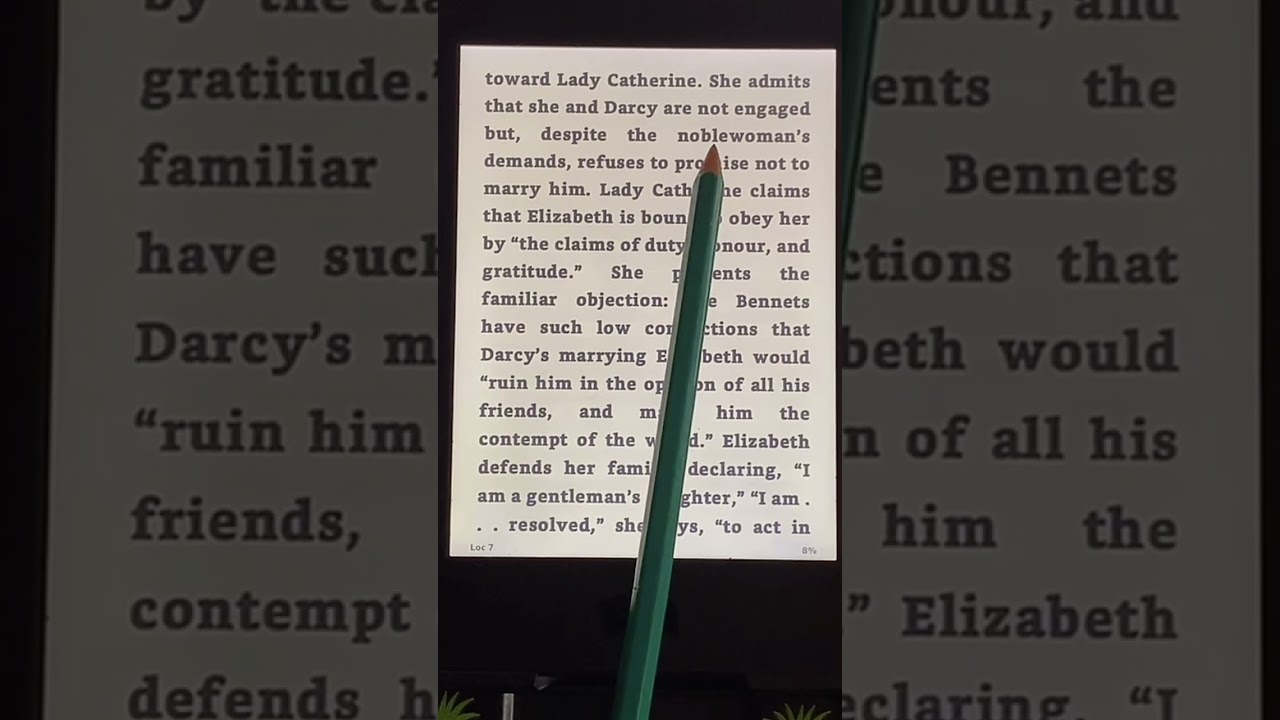 toward Lady Catherine. She admits
that she and Darcy are not engaged
but, despite the noblewoman's
demands, refuses to pro ise not to
marry him. Lady Cath ne claims
that Elizabeth is boun obey her
by “the claims of duty onour, and
gratitude.” She p ents the
familiar objection: e Bennets
have such low con ctions that
Darcy's marrying E beth would
“ruin him in the op on of all his
friends, and m him the
contempt of the w d.” Elizabeth
defends her fami declaring, “I
am a gentleman's ghter,” “I am .
. . resolved,” she ys, “to act in
Loc 7
8%